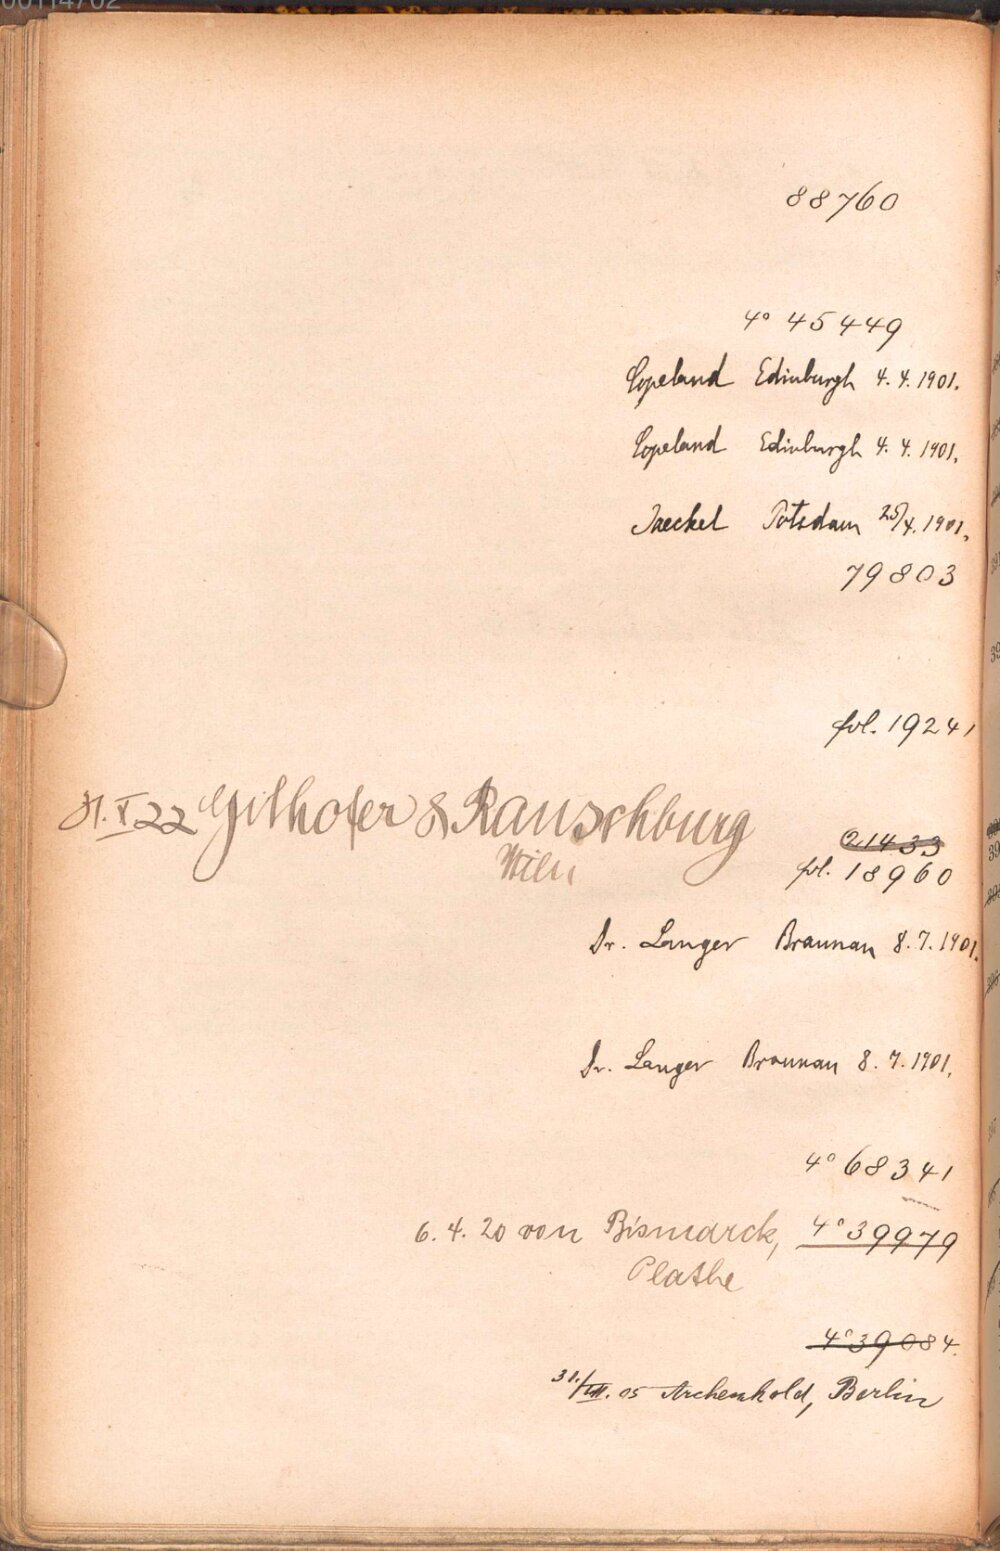 88760
4° 45449
Copeland Edinburgh 4. 4. 1901.
Copeland Edinburgh 4. 4. 1901.
Jaeckel Potsdam 25/4. 1901.
79803
fol. 19241
31. V 22 Gilhofer & Ranschburg
21433
Wien
fol. 18960
Dr. Langer Braunau 8. 7. 1901.
Dr. Langer Braunau 8. 7. 1901.
4° 68341
6. 4. 20 von Bismarck, 4° 39979
Plathe
4° 39084.
31./VII. 05 Archenhold, Berlin